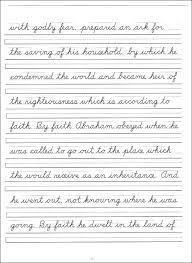 with godly fear, prepared an ark for
the saving of his household, by which he
condemned the world and became heir of
the righteousness which is according to
faith. By faith Abraham obeyed when he
was called to go out to the place which
he would receive as an inheritance. And
he went out, not knowing where he was
going. By faith he dwelt in the land of